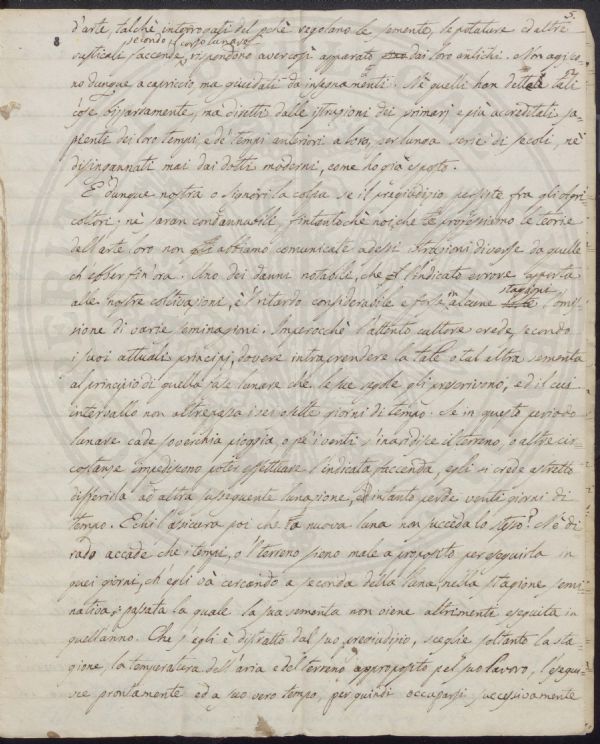 5.
d'arte, talchè interrogati del pchè regolano le semente, le potature ed altre
secondo il corso lunare
rusticali faccende, rispondono avercosì apparato dai loro antichi. Non agisco-
no dunque a capriccio, ma guidati da insegnamenti. Nè quelli han dettate tali
cose bizzarramente, ma diretti dalle istruzioni dei primarj e più accreditati sa-
pienti dei loro tempi, e de' tempi anteriori a loro, per lunga serie di secoli, nè
disingannati mai dai dotti moderni, come ho già esposto.
E' dunque nostra o Signori la colpa se il pregiudizio persiste fra gli agri-
coltori: nè saran condannabili, fintantochè noi, che professiamo le teorie
dell'arte loro non abbiamo comunicate adessi istruzioni diverse da quelle
ch'ebber fin'ora. Uno dei danni notabili, che l'indicato errore apporta
stagioni
alle nostre coltivazioni, è l'ritardo considerabile e forse in alcune l'omis-
sione di varie seminagioni. Imperocchè l'attento cultore crede, secondo
i suoi attuali principj, dovere intraprendere la tale o tal altra sementa
al principio di quella fase lunare che le sue regole gli prescrivono, ed il cui
intervallo non oltrepassa i sei o sette giorni di tempo. Se in questo periodo
lunare cade soverchia pioggia, o pe' i venti s'inaridisce il terreno, o altre cir-
costanze impediscono poter effettuare l'indicata faccenda, egli si crede astretto
differirla ad altra susseguente lunazione, ed intanto perde venti giorni di
tempo. E chi l'assicura poi che la nuova luna non succeda lo stesso? Nè di
rado accade che i tempi, o l'terreno sieno male a proposito per eseguirla in
quei giorni, ch'egli và cercando a seconda della luna, nella stagione semi-
nativa; passata la quale la sua sementa non viene altrimenti eseguita in
quell'anno. Che s'egli è distratto dal suo pregiudizio, sceglie soltanto la sta-
gione, la temperatura dell'aria e del terreno approposito pel suo lavoro, l'esegui-
sce prontamente ed a suo vero tempo, per quindi occuparsi successivamente